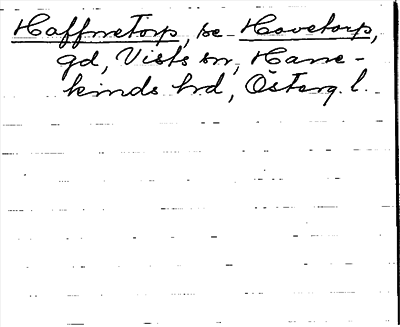 Haffnetorp, se Hovetorp,
gd, Vists sn, Hane-
kinds hd, Österg. l.